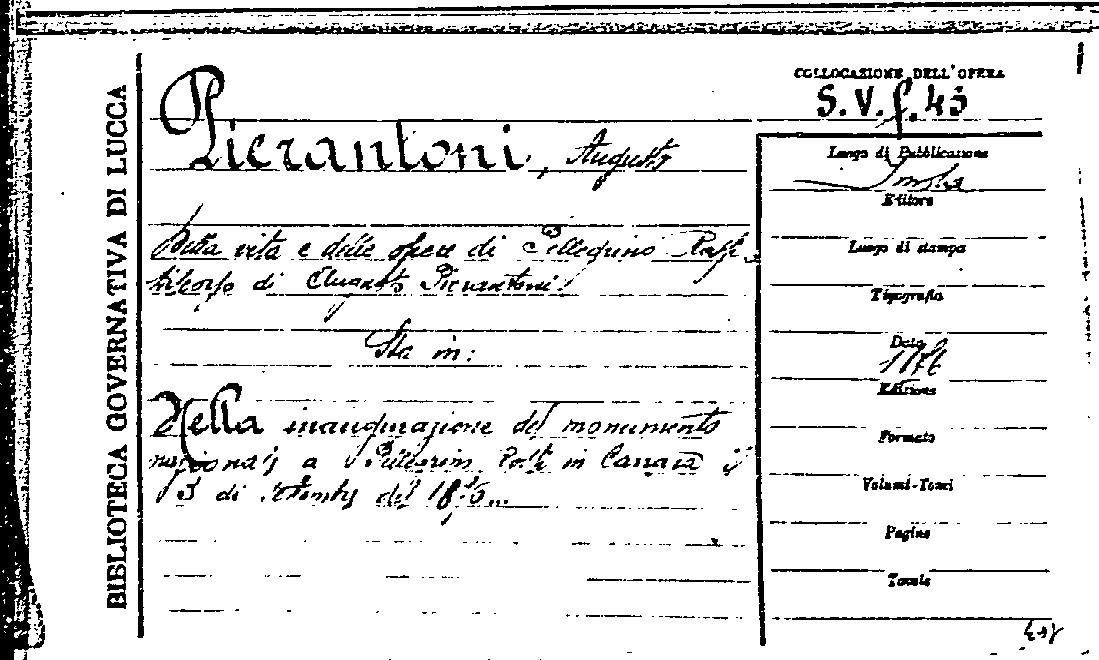 BIBLIOTECA GOVERNATIVA DI LUCCA
COLLOCAZIONE DELL'OPERA
S. V. f. 43
Pierantoni, Augusto
Della vita e delle opere di Pellegrino Rossi
di Augusto Pierantoni.
Sta in:
Nella inaugurazione del monumento
a Pellegrino Rossi in Carrara il
3 di settembre del 1876...
Luogo di Pubblicazione
Imola
Editore
Luogo di stampa
Tipografia
Data
1876
Edizione
Formato
Volumi-Tomi
Pagine
Tavole